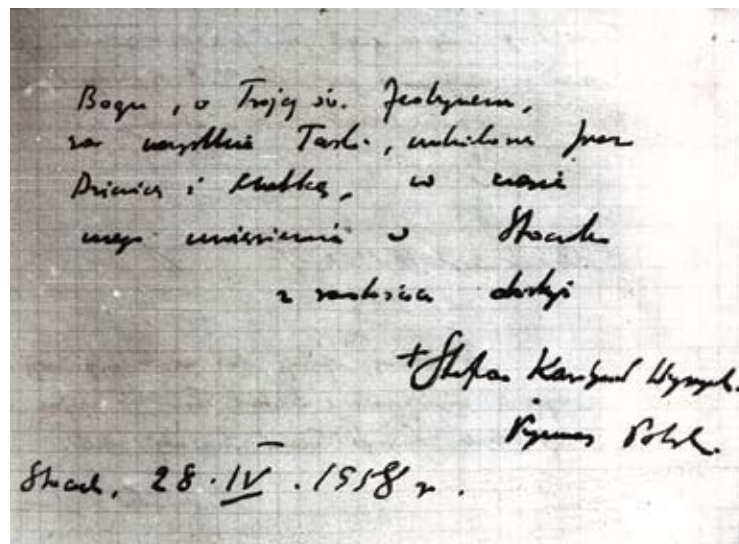 Bogu, w Trójcy św. Jedynemu,
za wszystkie Łaski, udzielone przez
Dziewicę i Matkę, w czasie
mego uwięzienia w Stoczku
z radością dziękuję
+ Stefan Kardynał Wyszyński
Prymas Polski.
Stoczek, 28.IV.1958 r.